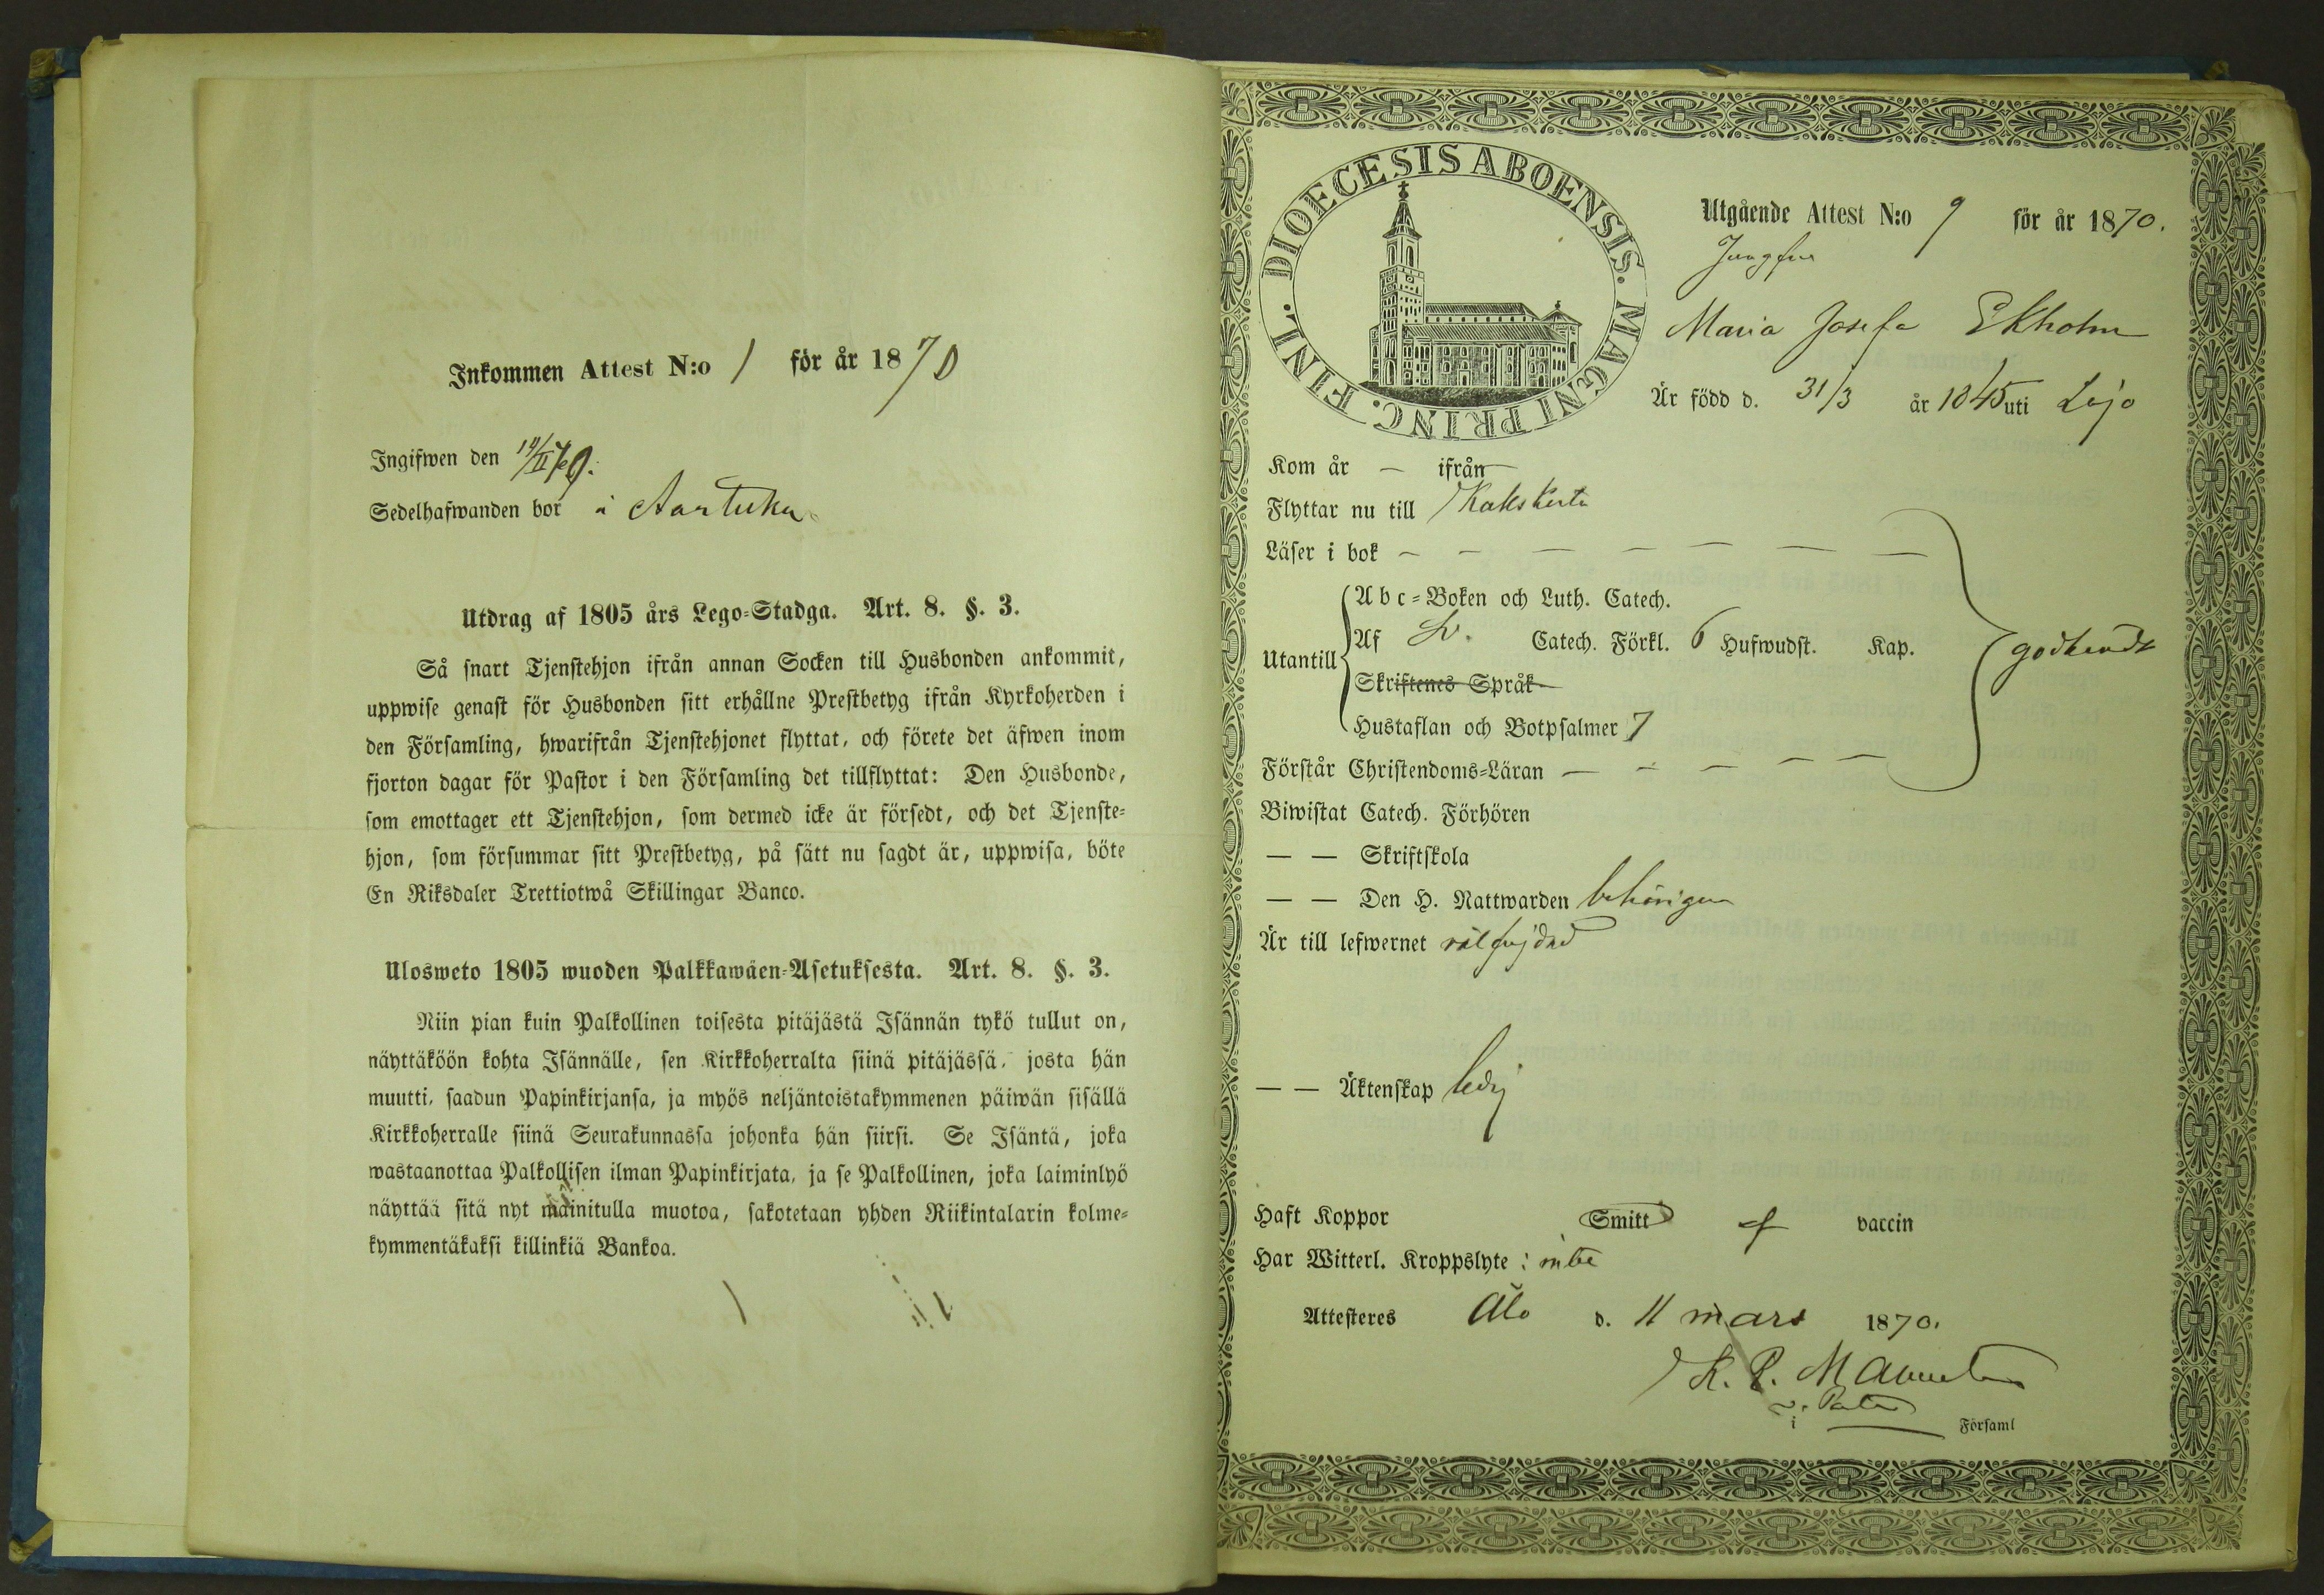 Inkommen Attest N:o 1 för år 1870
Ingifwen den
Sedelhafwanden bor i Aartuku
Utdrag af 1805 års Lego-Stadga. Art. 8. §. 3.
Så snart Tjenstehjon ifrån annan Socken till Husbonden ankommit,
uppwise genast för Husbonden sitt erhållne Prestbetyg ifrån Kyrkoherden i
den Församling, hwarifrån Tjenstehjonet flyttat, och förete det äfwen inom
fjorton dagar för Pastor i den Församling det tillflyttat: Den Husbonde,
som emottager ett Tjenstehjon, som dermed icke är försedt, och det Tjenste-
hjon, som försummar sitt Prestbetyg, på sätt nu sagdt är, uppwisa, böte
En Riksdaler Trettiotwå Skillingar Banco.
Ulosweto 1805 wuoden Palkkawäen-Asetuksesta. Art. 8. §. 3.
Niin pian kuin Palkollinen toisesta pitäjästä Isännän tykö tullut on,
näyttäköön kohta Isännälle, sen Kirkkoherralta siinä pitäjässä, josta hän
muutti, saadun Papinkirjansa, ja myös neljäntoistakymmenen päiwän sisällä
Kirkkoherralle siinä Seurakunnassa johonka hän siirsi. Se Isäntä, joka
wastaanottaa Palkollisen ilman Papinkirjata, ja se Palkollinen, joka laiminlyö
näyttää sitä nyt mainitulla muotoa, sakotetaan yhden Riikintalarin kolme-
kymmentäkaksi killinkiä Bankoa.
DIOECESIS ABOENSIS. MAGNI PRINC. FINL.
Utgående Attest N:o 9 för år 1870.
Jungfru
Maria Josefa Ekholm
Är född d. 31/3 år 1845 uti Lojo
Kom år — ifrån —
Flyttar nu till Kakskerta
Läser i bok — — — — — — —
Abc-Boken och Luth. Catech.
Utantill
Af Sv. Catech. Förkl. 6 Hufwudst. Kap.
godkändt
Skriftenes Språk
Hustaflan och Botpsalmer 7
Förstår Christendoms-Läran — — — — —
Biwistat Catech. Förhören
— — Skriftskola
— — Den H. Nattwarden behörigen
Är till lefwernet välfrejdad
— — Äktenskap ledig
Haft Koppor Smitt af vaccin
Har Witterl. Kroppslyte: inte
Attesteres Åbo d. 11 mars 1870.
K. P. Malmsten
v. Pastor
i Församl